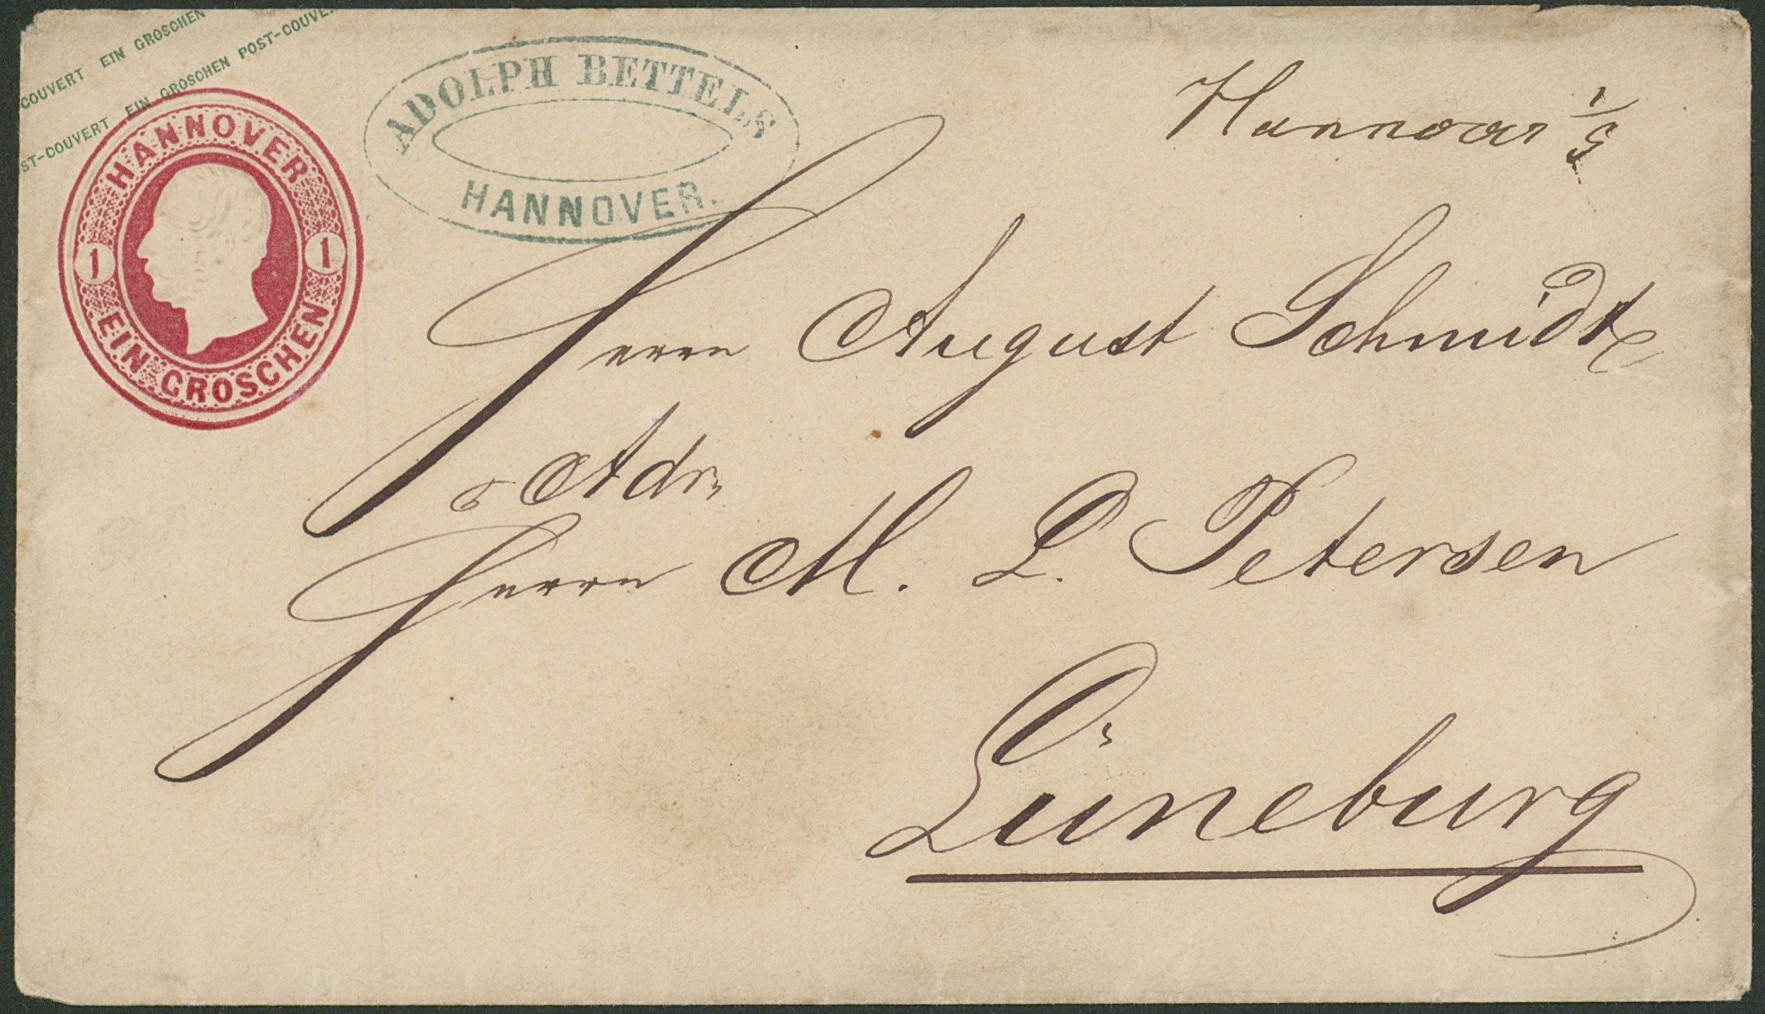 COUVERT EIN GROSCHEN
ST-COUVERT EIN GROSCHEN POST-COUVE
HANNOVER
1 1
EIN GROSCHEN
ADOLPH BETTELS
HANNOVER.
Hannover 1/9
Herrn August Schmidt
Adr.
Herrn M. L. Petersen
Lüneburg